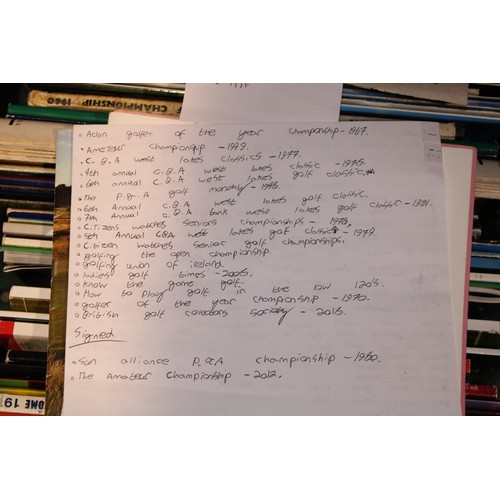 CHAMPIONSHIP 1960
• Acion golfer of the year championship - 1967.
• Amateur championship - 1999.
• C.B.A west lakes classics - 1977.
• 4th annual C.B.A west lakes classic - 1978.
• 6th annual C.B.A west lakes golf classic
• The P.G.A golf monthly - 1978.
• 6th Annual C.B.A west lakes golf classic.
• 7th Annual C.B.A bank west lakes golf classic - 1981.
• Citizens watches seniors championships - 1978.
• 5th Annual CBA west lakes golf classic - 1979
• Citizen watches senior golf championships.
• golfing the open championship.
• golfing union of ireland.
• ladies golf times - 2006.
• know the game golf.
• How to play golf in the low 120's.
• golfer of the year championship - 1970.
• British golf collectors society - 2016.
Signed
• Sun alliance P.G.A championship - 1980.
• The Amateur Championship - 2012.
OME 19